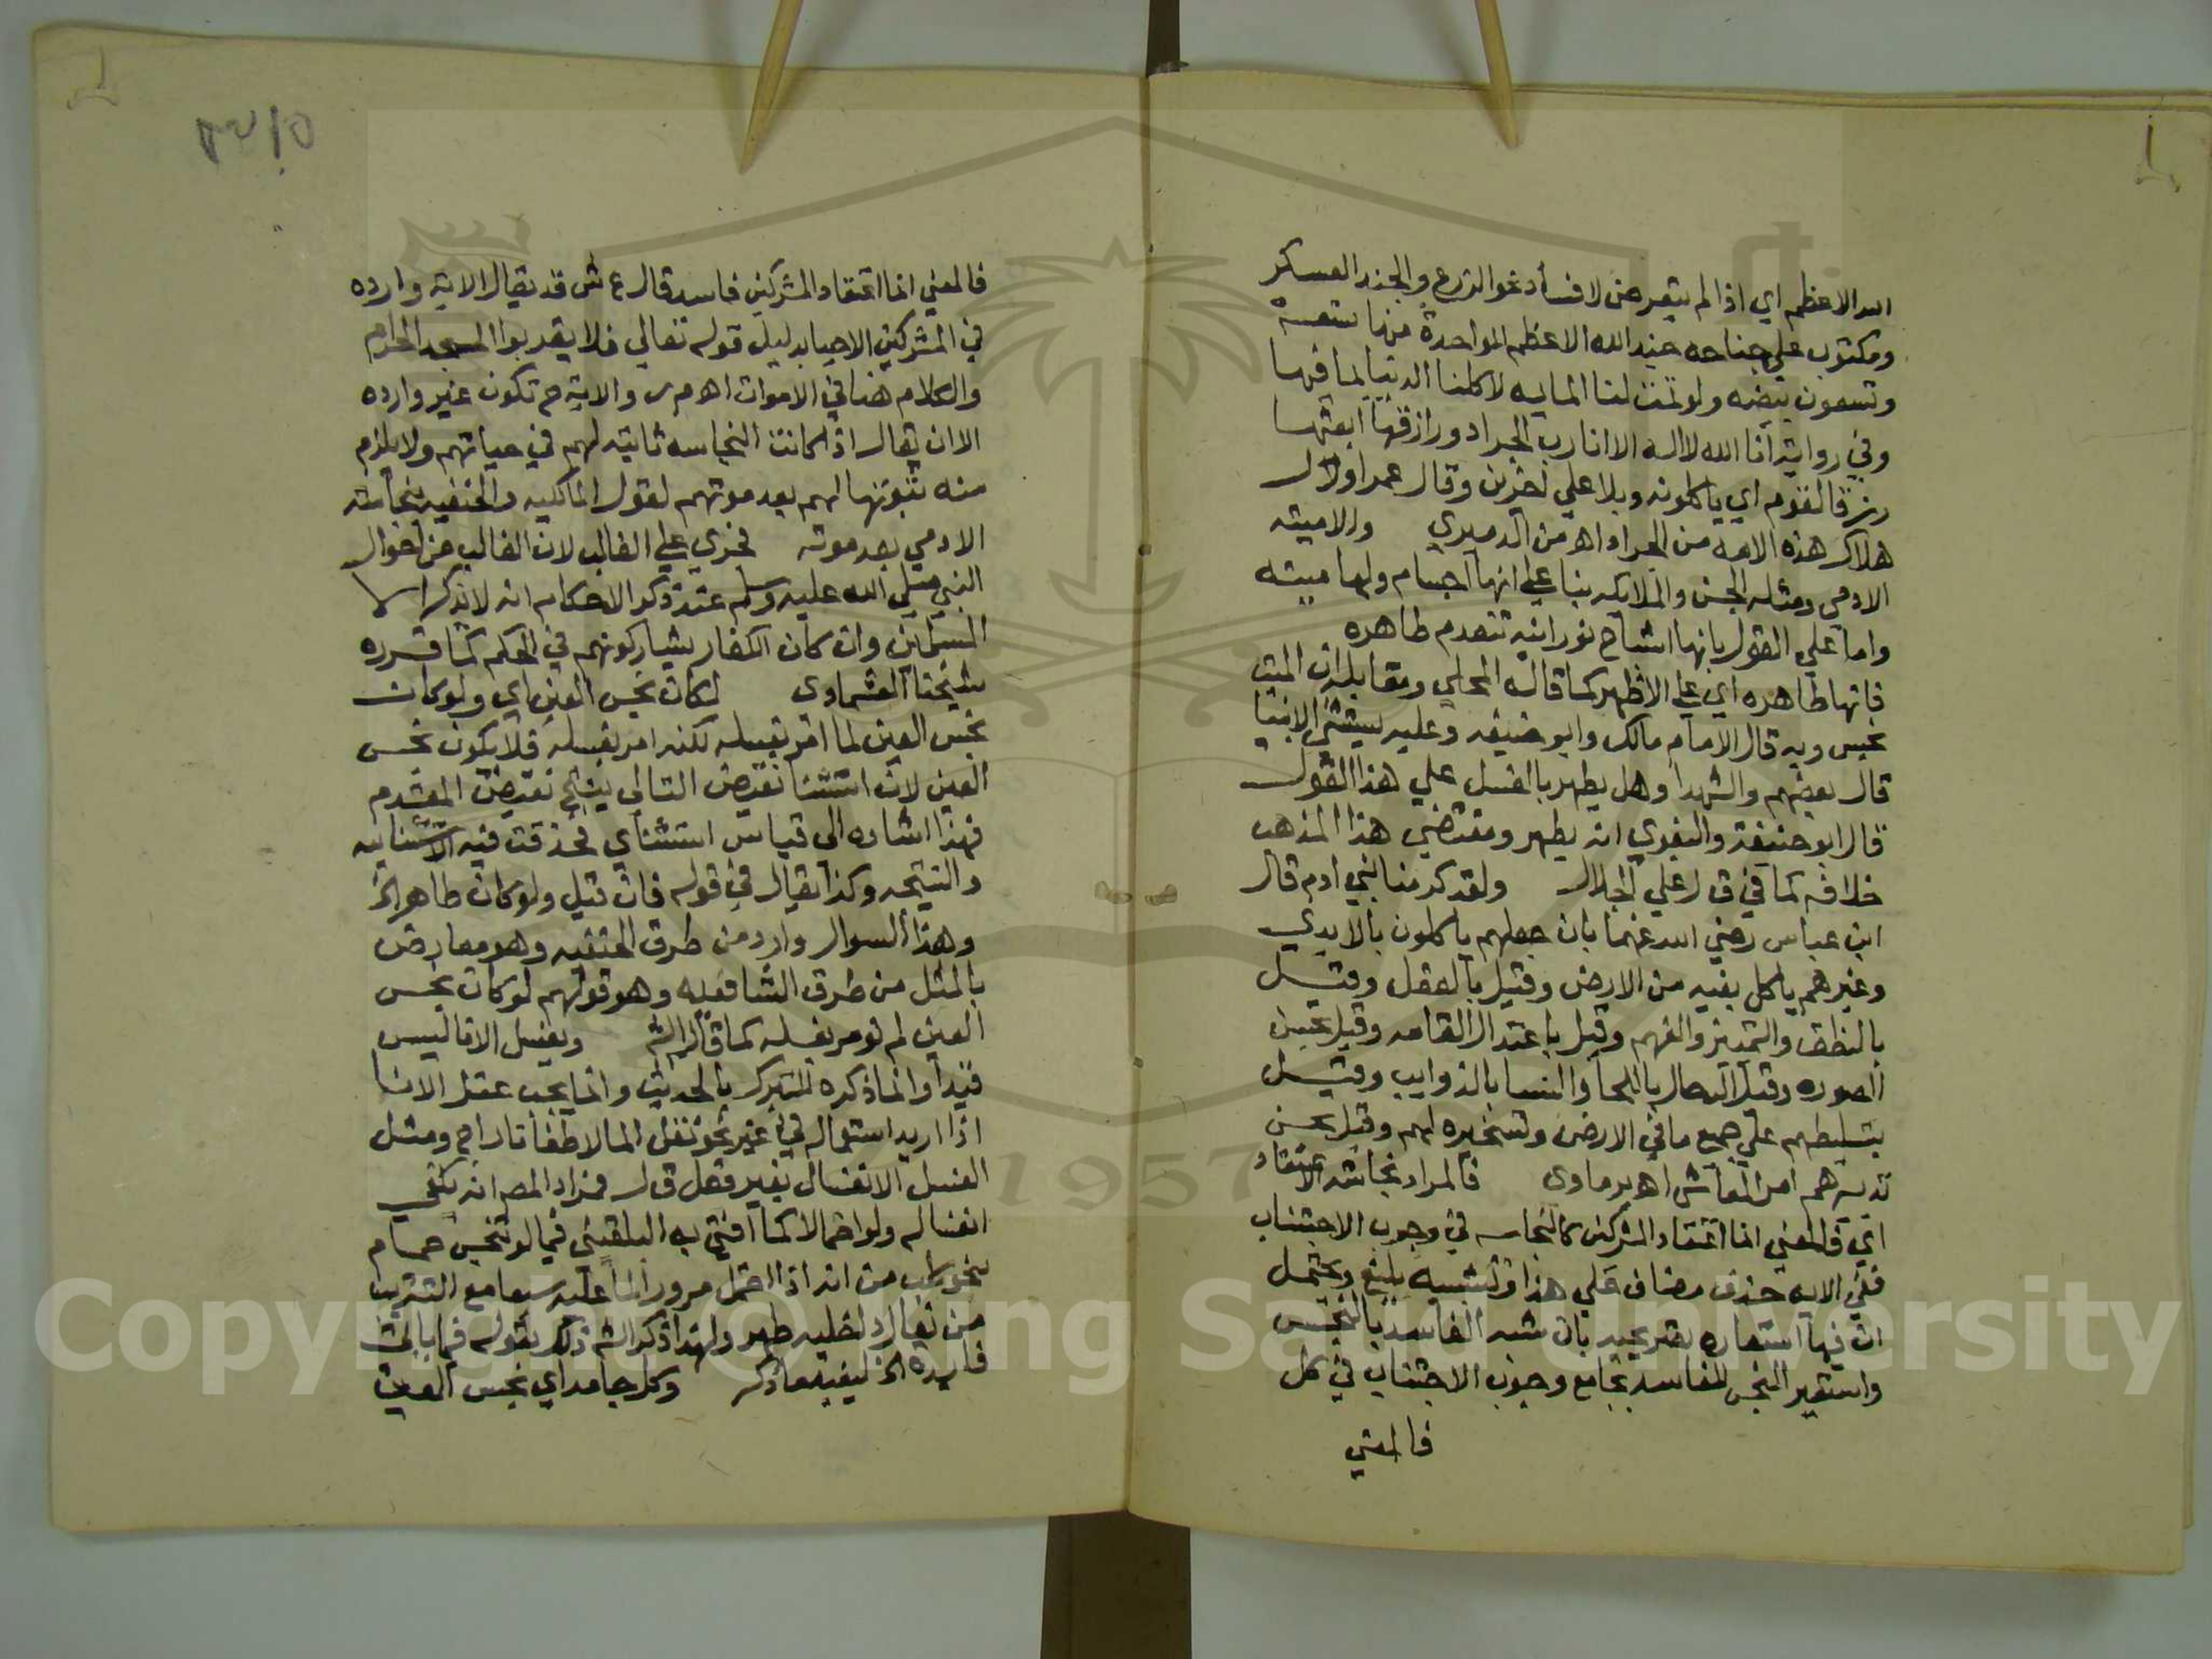 الله الاعظم اي اذا لم يتعرض لافساد نحو الزرع والجند العسكر
ومكتوب علي جناحه جند الله الاعظم الواحدة منها تسعة
وتسعون بيضه ولو تمت لنا المايه لاكلنا الدنيا بما فيها
وفي رواية انا الله لا اله الا انا رب الجراد ورازقها ابعثها
رزقا لقوم اي ياكلونه وبلا علي اخرين وقال عمر اول
هلاك هذه الامه من الجراد اه من الدميري والاميته
الادمي ومثله الجن والملايكه بنا علي انها اجسام ولها ميته
واما علي القول بانها اشباح نورانيه تنعدم طاهره
فانها طاهره اي علي الاظهر كما قاله المحلي ومقابله ان الميت
نجس وبه قال الامام مالك وابو حنيفه وعليه يستثني الانبيا
قال بعضهم والشهدا وهل يطهر بالغسل علي هذا القول
قال ابو حنيفة والبغوي انه يطهر ومقتضي هذا المذهب
خلافه كما في ق ل علي الجلال ولقد كرمنا بني ادم قال
ابن عباس رضي الله عنهما بان جعلهم ياكلون بالايدي
وغيرهم ياكل بفيه من الارض وقيل بالعقل وقيل
بالنطق والتمييز والفهم وقيل باعتدال القامه وقيل بحسن
الصوره وقيل الرجال باللحا والنسا بالذوايب وقيل
بتسليطهم علي جميع ما في الارض وتسخيره لهم وقيل بحسن
تدبيرهم امر المعاش اه برماوي فالمراد نجاسة الاعتقاد
اي فالمعني انما اعتقاد المشركين كالنجاسه في وجوب الاجتناب
ففي الايه حذف مضاف علي هذا وتشبيه بليغ ويحتمل
ان فيها استعاره تصريحيه بان شبه الفاسد بالنجس
واستعير النجس للفاسد بجامع وجوب الاجتناب في كل
فالمعني
فالمعني انما اعتقاد المشركين فاسد قال ع ش قد يقال الاية وارده
في المشركين الاحيا بدليل قوله تعالي فلا يقربوا المسجد الحرام
والكلام هنا في الاموات اه م ر والاية ح تكون غير وارده
الا ان يقال اذا كانت النجاسه ثابته لهم في حياتهم ولا يلزم
منه ثبوتها لهم بعد موتهم لقول المالكيه والحنفيه بنجاسة
الادمي بعد موته فجري علي الغالب لان الغالب من احوال
النبي صلي الله عليه وسلم عند ذكر الاحكام انه لا يذكر الا
المسلمين وان كان الكفار يشاركونهم في الحكم كما قرره
شيخنا العشماوي لكان نجس العين اي ولو كان
نجس العين لما امر بغسله لكنه امر بغسله فلا يكون نجس
العين لان استثنا نقيض التالي ينتج نقيض المقدم
فهذا اشاره الي قياس استثناي فحذفت فيه الاستثناييه
والنتيجه وكذا يقال في قوله فان قيل ولو كان طاهرا الخ
وهذا السوال وارد من طرف الحنفيه وهو معارض
بالمثل من طرف الشافعيه وهو قولهم لو كان نجس
العين لم نومر بغسله كما قال الشه ويغسل الانا ليس
قيدا وانما ذكره للتبرك بالحديث وانما يجب غسل الانا
اذا اريد استعماله في غير نحو نقل الما لاطفا نار ا ج ومثل
الغسل الانغسال بغير فعل قال فمراد المص انه يكفي
انغساله ولو احتمالا كما افتي به البلقيني فيما لو تنجس حمام
بنحو كلب من انه اذا احتمل مرور الما عليه سبعا مع التتريب
من نعال داخليه طهر ولهذا ذكر الشه ذلك بقوله فيما ياتي
فايده الخ ليفيد ما ذكر وكل جامد اي نجس العين